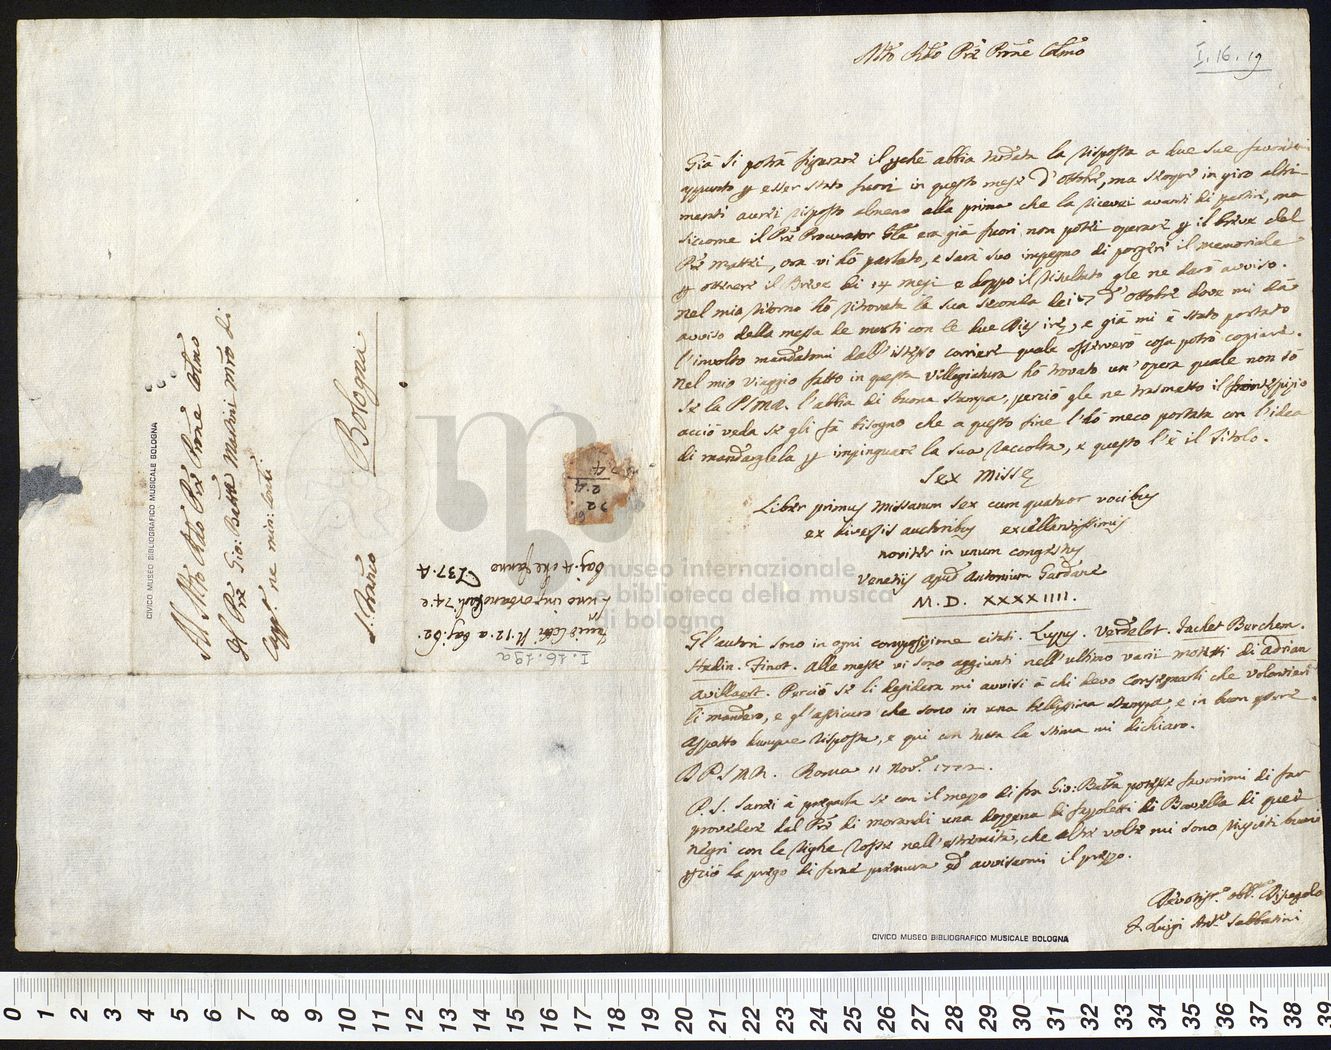 I. 16. 19
Già si potrà figurare il pchè abbia tardata la risposta a due sue favoritemi
appunto p esser stato fuori in questo mese d'Ottobre, ma sempre in giro altri-
menti averei risposto almeno alla prima che la ricevei avanti di partire, ma
siccome il Pre Procurator Gle era già fuori non potei operare p il breve del
Pre Mattei, ora vi hò parlato, e sarà suo impegno di porgere il memoriale
p ottenere il Breve di 14 mesi e doppo il risultato gle ne darò avviso.
nel mio ritorno hò ritrovata la sua seconda dei d'Ottobre dove mi dà
avviso della messa de morti con le due Dies iræ, e già mi è stato portato
l'involto mandatomi dall'istesso corriere quale osserverò cosa potrò copiare.
Nel mio viaggio fatto in questa villegiatura hò trovato un'opera quale non sò
se la P.S.M.R. l'abbia di buona stampa, perciò gle ne trasmetto il frontespizio
acciò veda se gli fà bisogno che a questo fine l'hò meco portata con l'idea
di mandarglela p impinguare la sua raccolta, e questo l'è il titolo.
Sex Missæ
Liber primus Missarum sex cum quatuor vocibus
ex diversis auctoribus excellentissimis
noviter in unum congestus
Venetijs apud Antonium Gardane
M. D. XXXXIIII.
Gl'autori sono in ogni composizione citati. Luppus. Verdelot. Jachet Berchem.
Finot. Alla messe vi sono aggiunti nell'ultimo varii motetti di Adrian
Willaert. Perciò se li desidera mi avvisi à chi devo consegnarli che volontieri
li manderò, e gl'assicuro che sono in una bellissima stampa, e in buon essere.
Aspetto dunque risposta, e qui con tutta la stima mi dichiaro.
D P.S.M.R. Roma 11 Nov.e 1772.
P.S. Sarei à pregarla se con il mezzo di fra Gio: Batta potesse favorirmi di far
provedere dal Pre di morandi una dozzena di fazzoletti di Bavella di quei
negri con le righe rosse nell'estremità, che altre volte mi sono riusciti buoni
pciò la prego di farne premura ed avvisarmi il prezzo.
Devotis.o obb.mo Discepolo
F. Luigi Ant.o Sabbatini
CIVICO MUSEO BIBLIOGRAFICO MUSICALE BOLOGNA
CIVICO MUSEO BIBLIOGRAFICO MUSICALE BOLOGNA
Al Mto Rdo Pre Prone Colmo
Il Pre Gio: Batta Martini mro di
Capp.a ne min: conti
S. Franco Bologna
I. 16. 19a
museo internazionale
e biblioteca della musica
di bologna
0 1 2 3 4 5 6 7 8 9 10 11 12 13 14 15 16 17 18 19 20 21 22 23 24 25 26 27 28 29 30 31 32 33 34 35 36 37 38 39